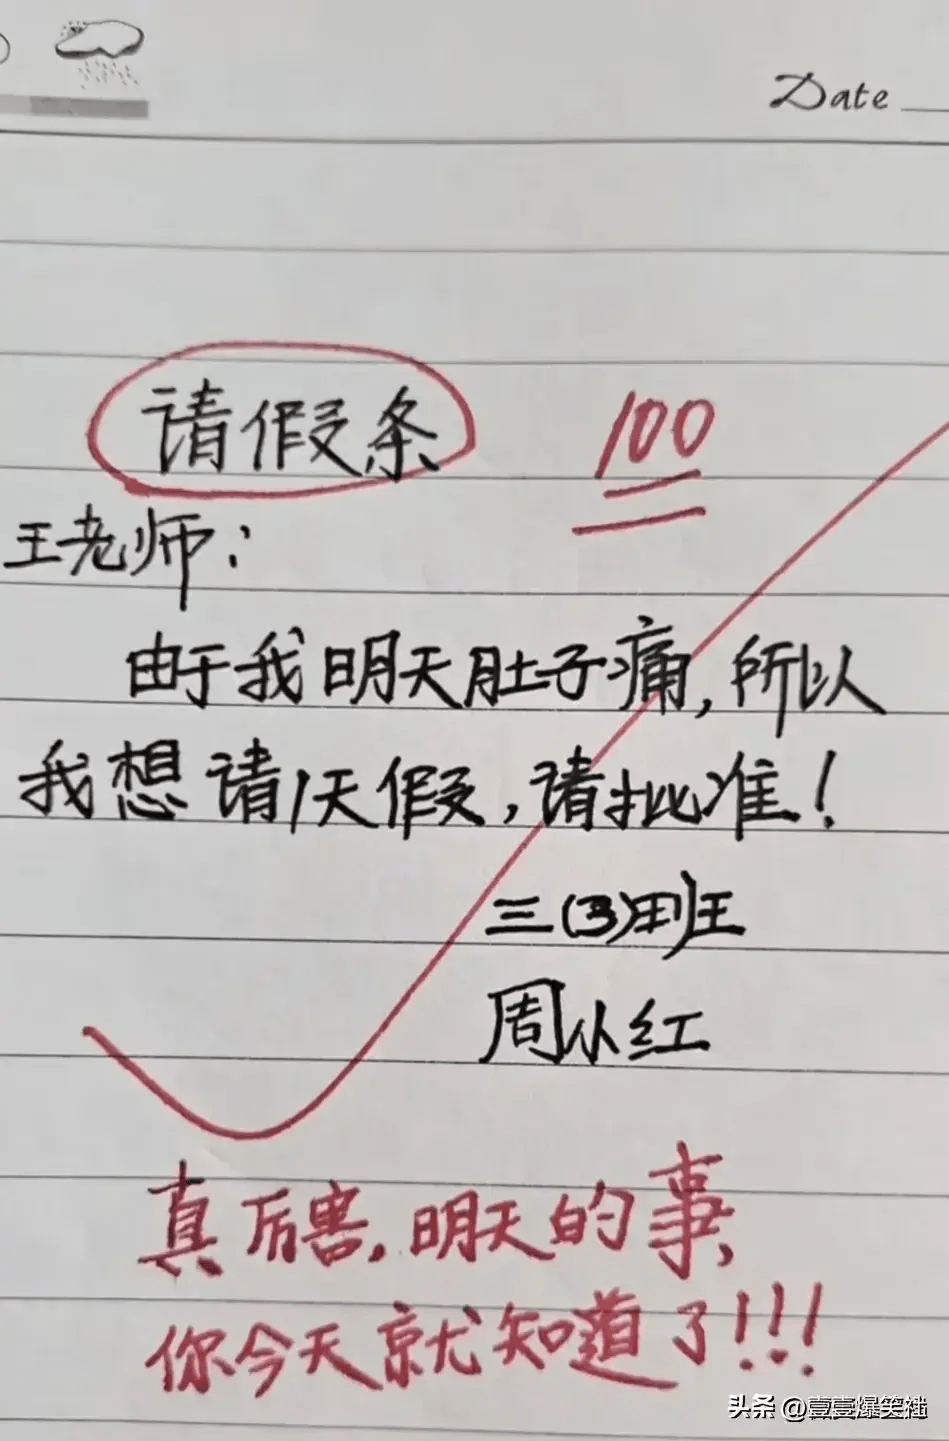 Date
请假条
100
王老师：
由于我明天肚子痛，所以
我想请1天假，请批准！
三(3)班
周小红
真厉害，明天的事，
你今天就知道了!!!
头条 @壹壹爆笑社